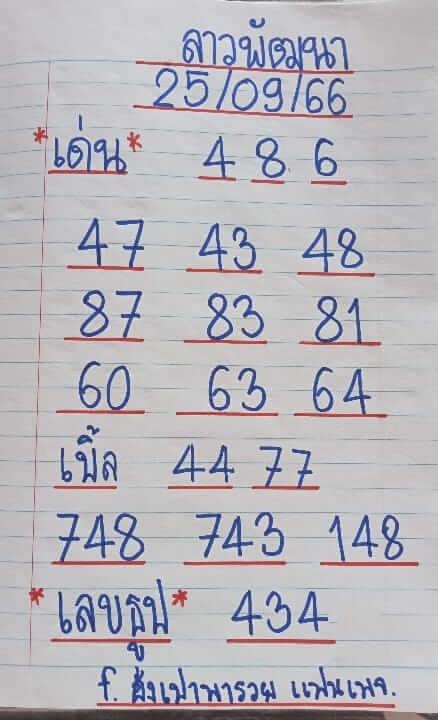 ลาวพัฒนา
25/09/66
*เด่น* 4 8 6
47 43 48
87 83 81
60 63 64
เบิ้ล 44 77
748 743 148
*เลขธูป* 434
f. ฮังเปาพารวย แฟนเพจ.